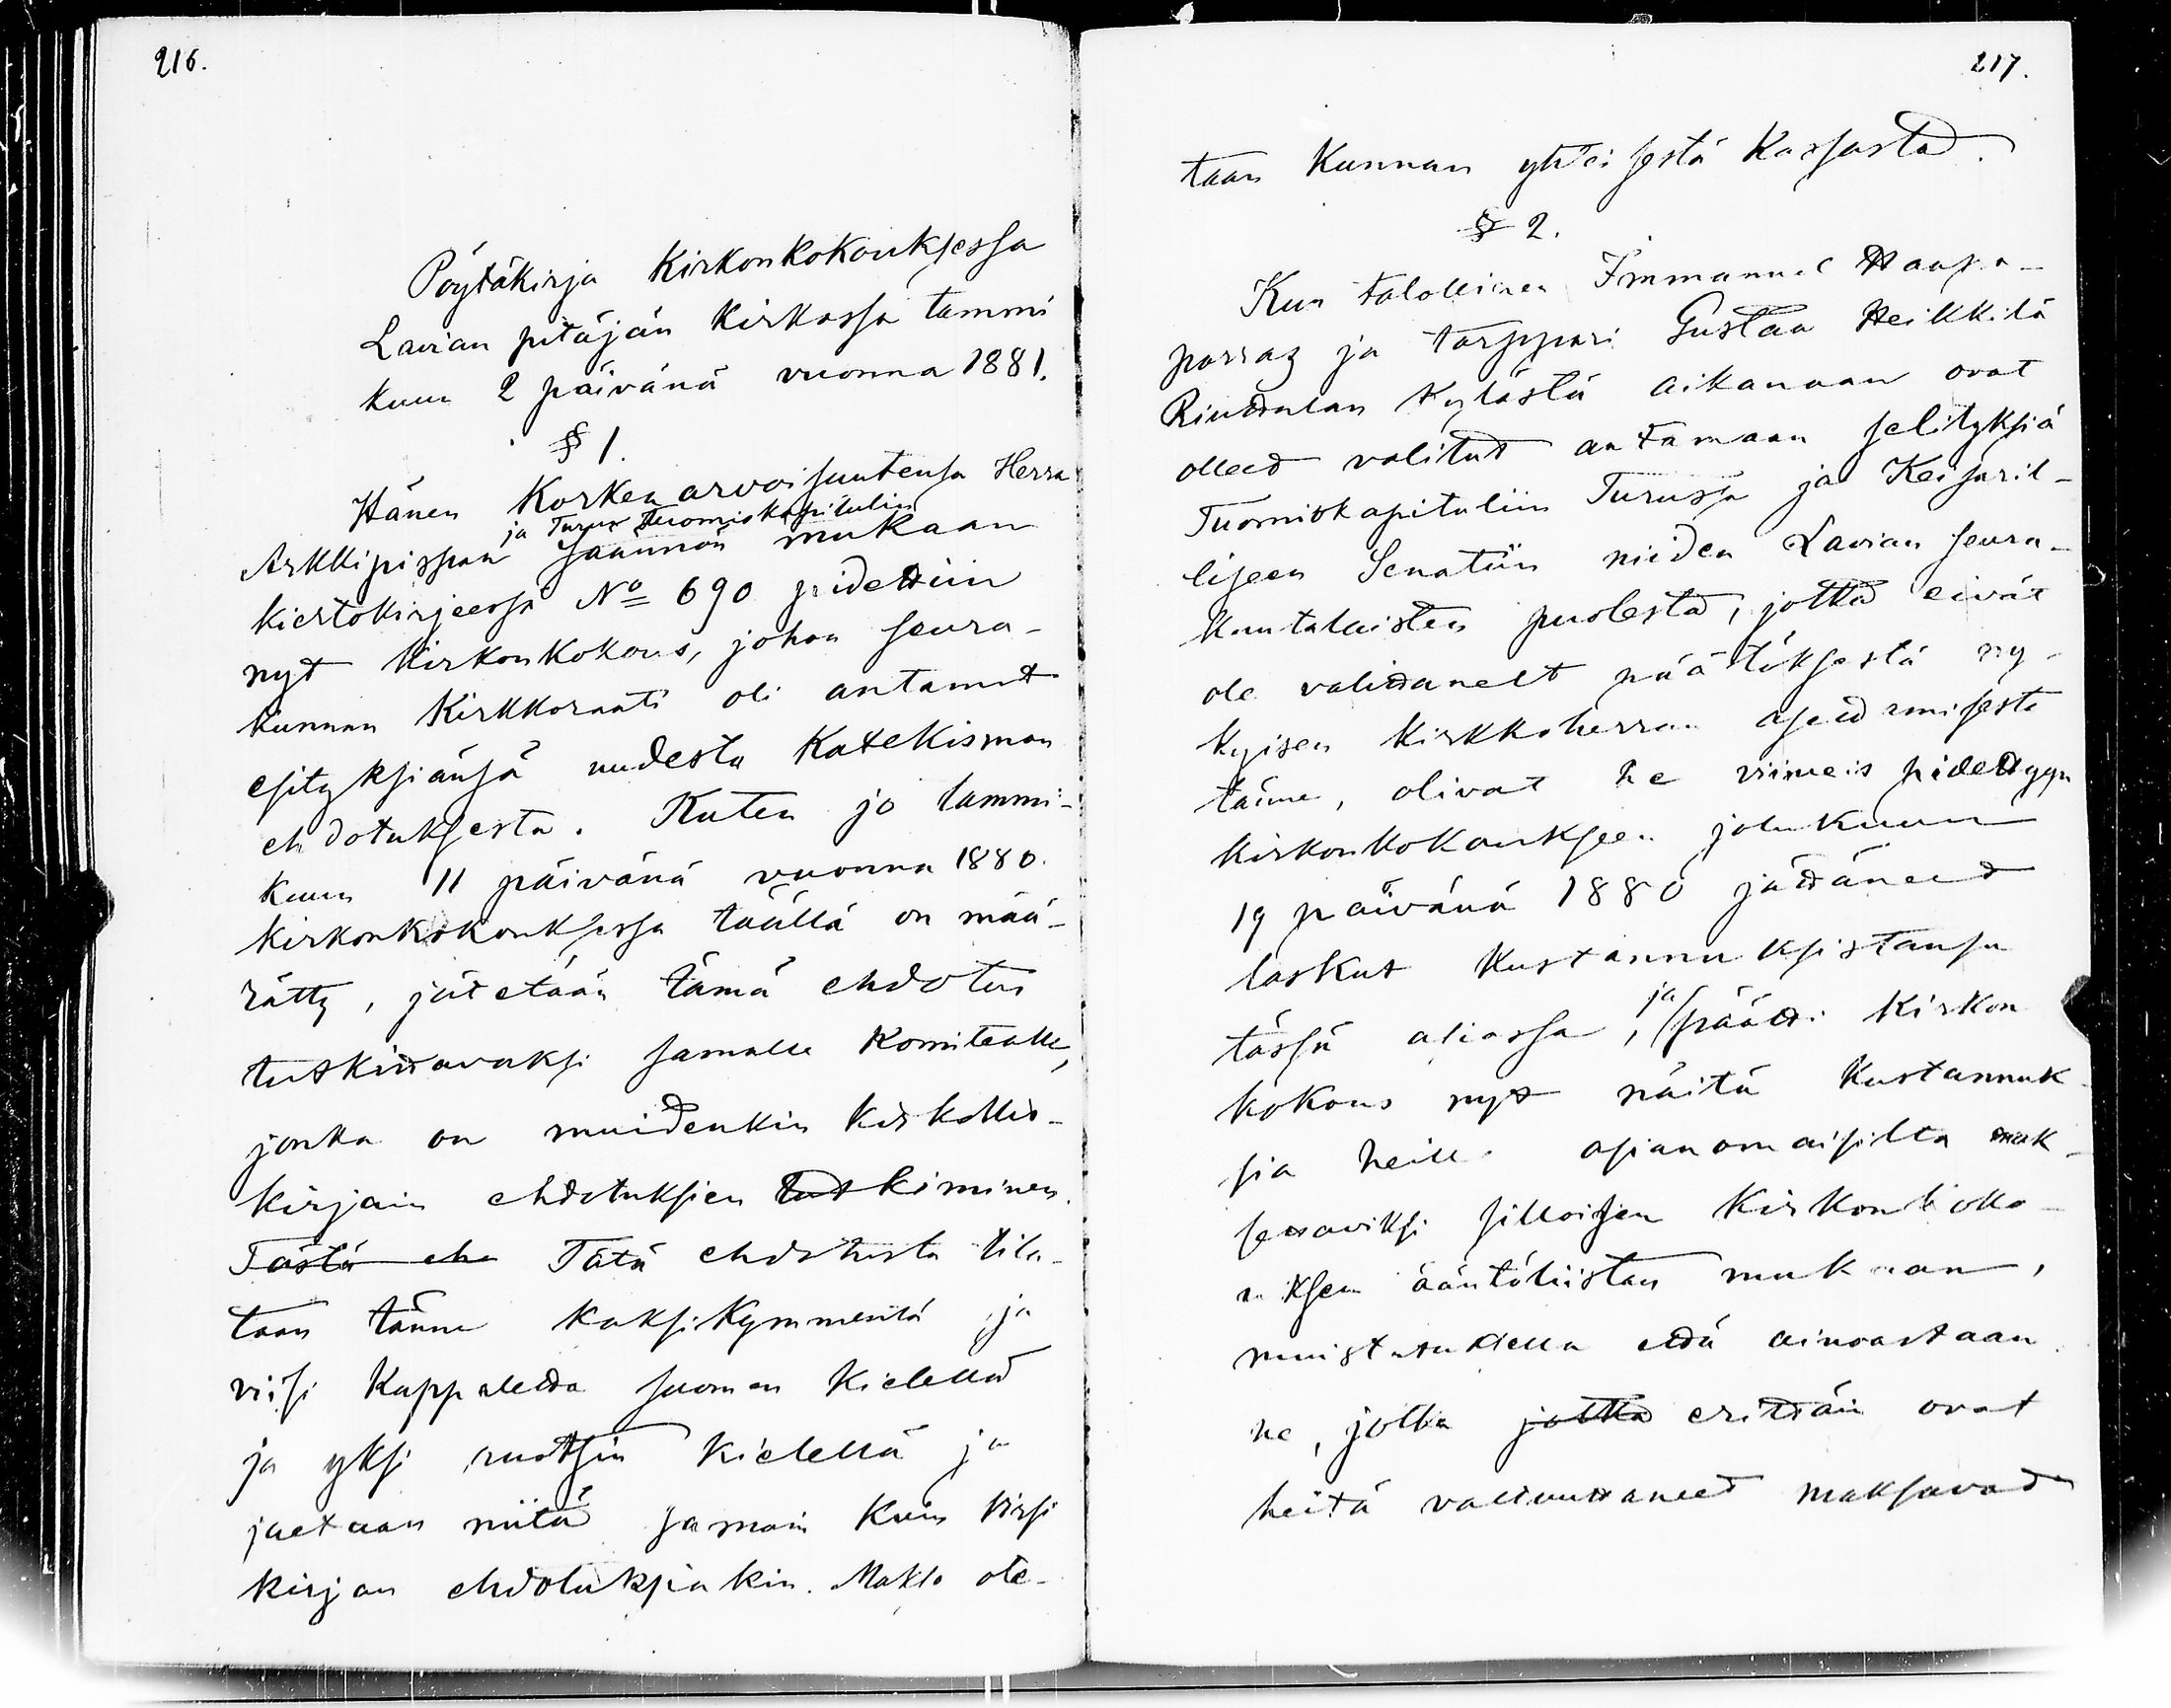 216.
Pöytäkirja Kirkonkokouksessa
Lavian pitäjän Kirkossa tammi
kuun 2 päivänä vuonna 1881.
§ 1.
Hänen Korkea arvoisuutensa Herra
ja Turun Tuomiokapitulin
Arkkipispan säännön mukaan
kiertokirjeessä No 690 pidettiin
nyt Kirkonkokous, johon seura-
kunnan Kirkkoraati oli antanut
esityksiänsä uudesta Katekismon
ehdotuksesta. Kuten jo tammi-
kuun 11 päivänä vuonna 1880.
Kirkonkokouksessa täällä on mää-
rätty, jätetään tämä ehdotus
tutkittavaksi samalle Komitealle,
jonka on muidenkin Kirkollis-
kirjain ehdotuksien tutkiminen.
Tästä eh Tätä ehdotusta tila-
taan tänne kaksikymmentä ja
viisi Kappaletta suomen kielellä
ja yksi ruotsin kielellä ja
jaetaan niitä samoin kuin Virsi
kirjan ehdotuksiakin. Makso ote-
217.
taan Kunnan yhteisestä Kassasta.
§ 2.
Kun talollinen Immanuel Haapa-
porras ja torppari Gustaa Heikkilä
Riuttalan Kylästä aikanaan ovat
olleet valitut antamaan selityksiä
Tuomiokapituliin Turussa ja Keisaril-
liseen Senatiin niiden Lavian seura-
kuntalaisten puolesta, jotka eivät
ole valittanelt päätöksestä ny-
kyisen Kirkkoherran asettamisesta
tänne, olivat he viimeis pidettyyn
Kirkonkokoukseen joulukuun
19 päivänä 1880 jättäneet
laskut Kustannuksistansa
tässä asiassa, ja päätti Kirkon
kokous nyt näitä Kustannuk-
sia heille asianomaisilta mak-
settaviksi silloisen Kirkonkoko-
uksen ääntöliistan mukaan,
muistutuksella että ainoastaan
ne, jotka jotka erittäin ovat
heitä valtuuttaneet maksavat